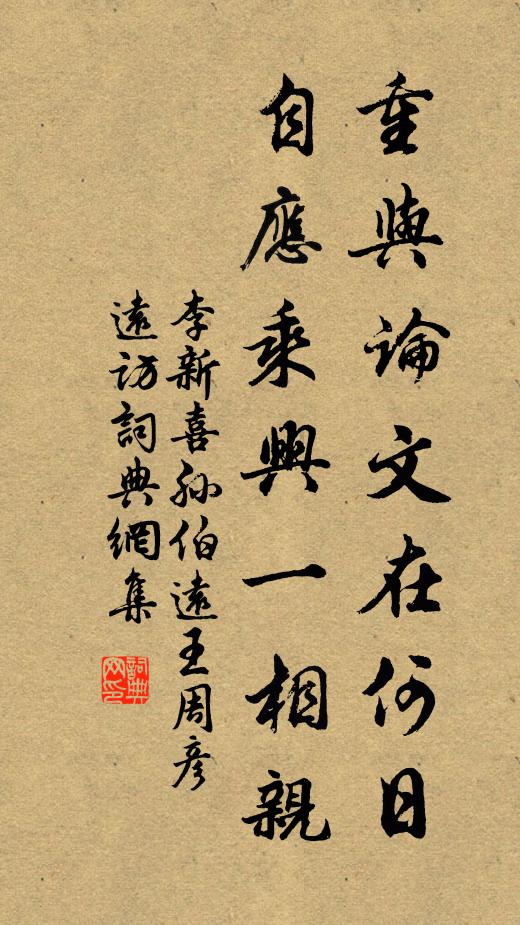 重與論文在何日
自應乘興一相親
李新喜孙伯遠王周彦
遠訪詞典網集
詞典网印